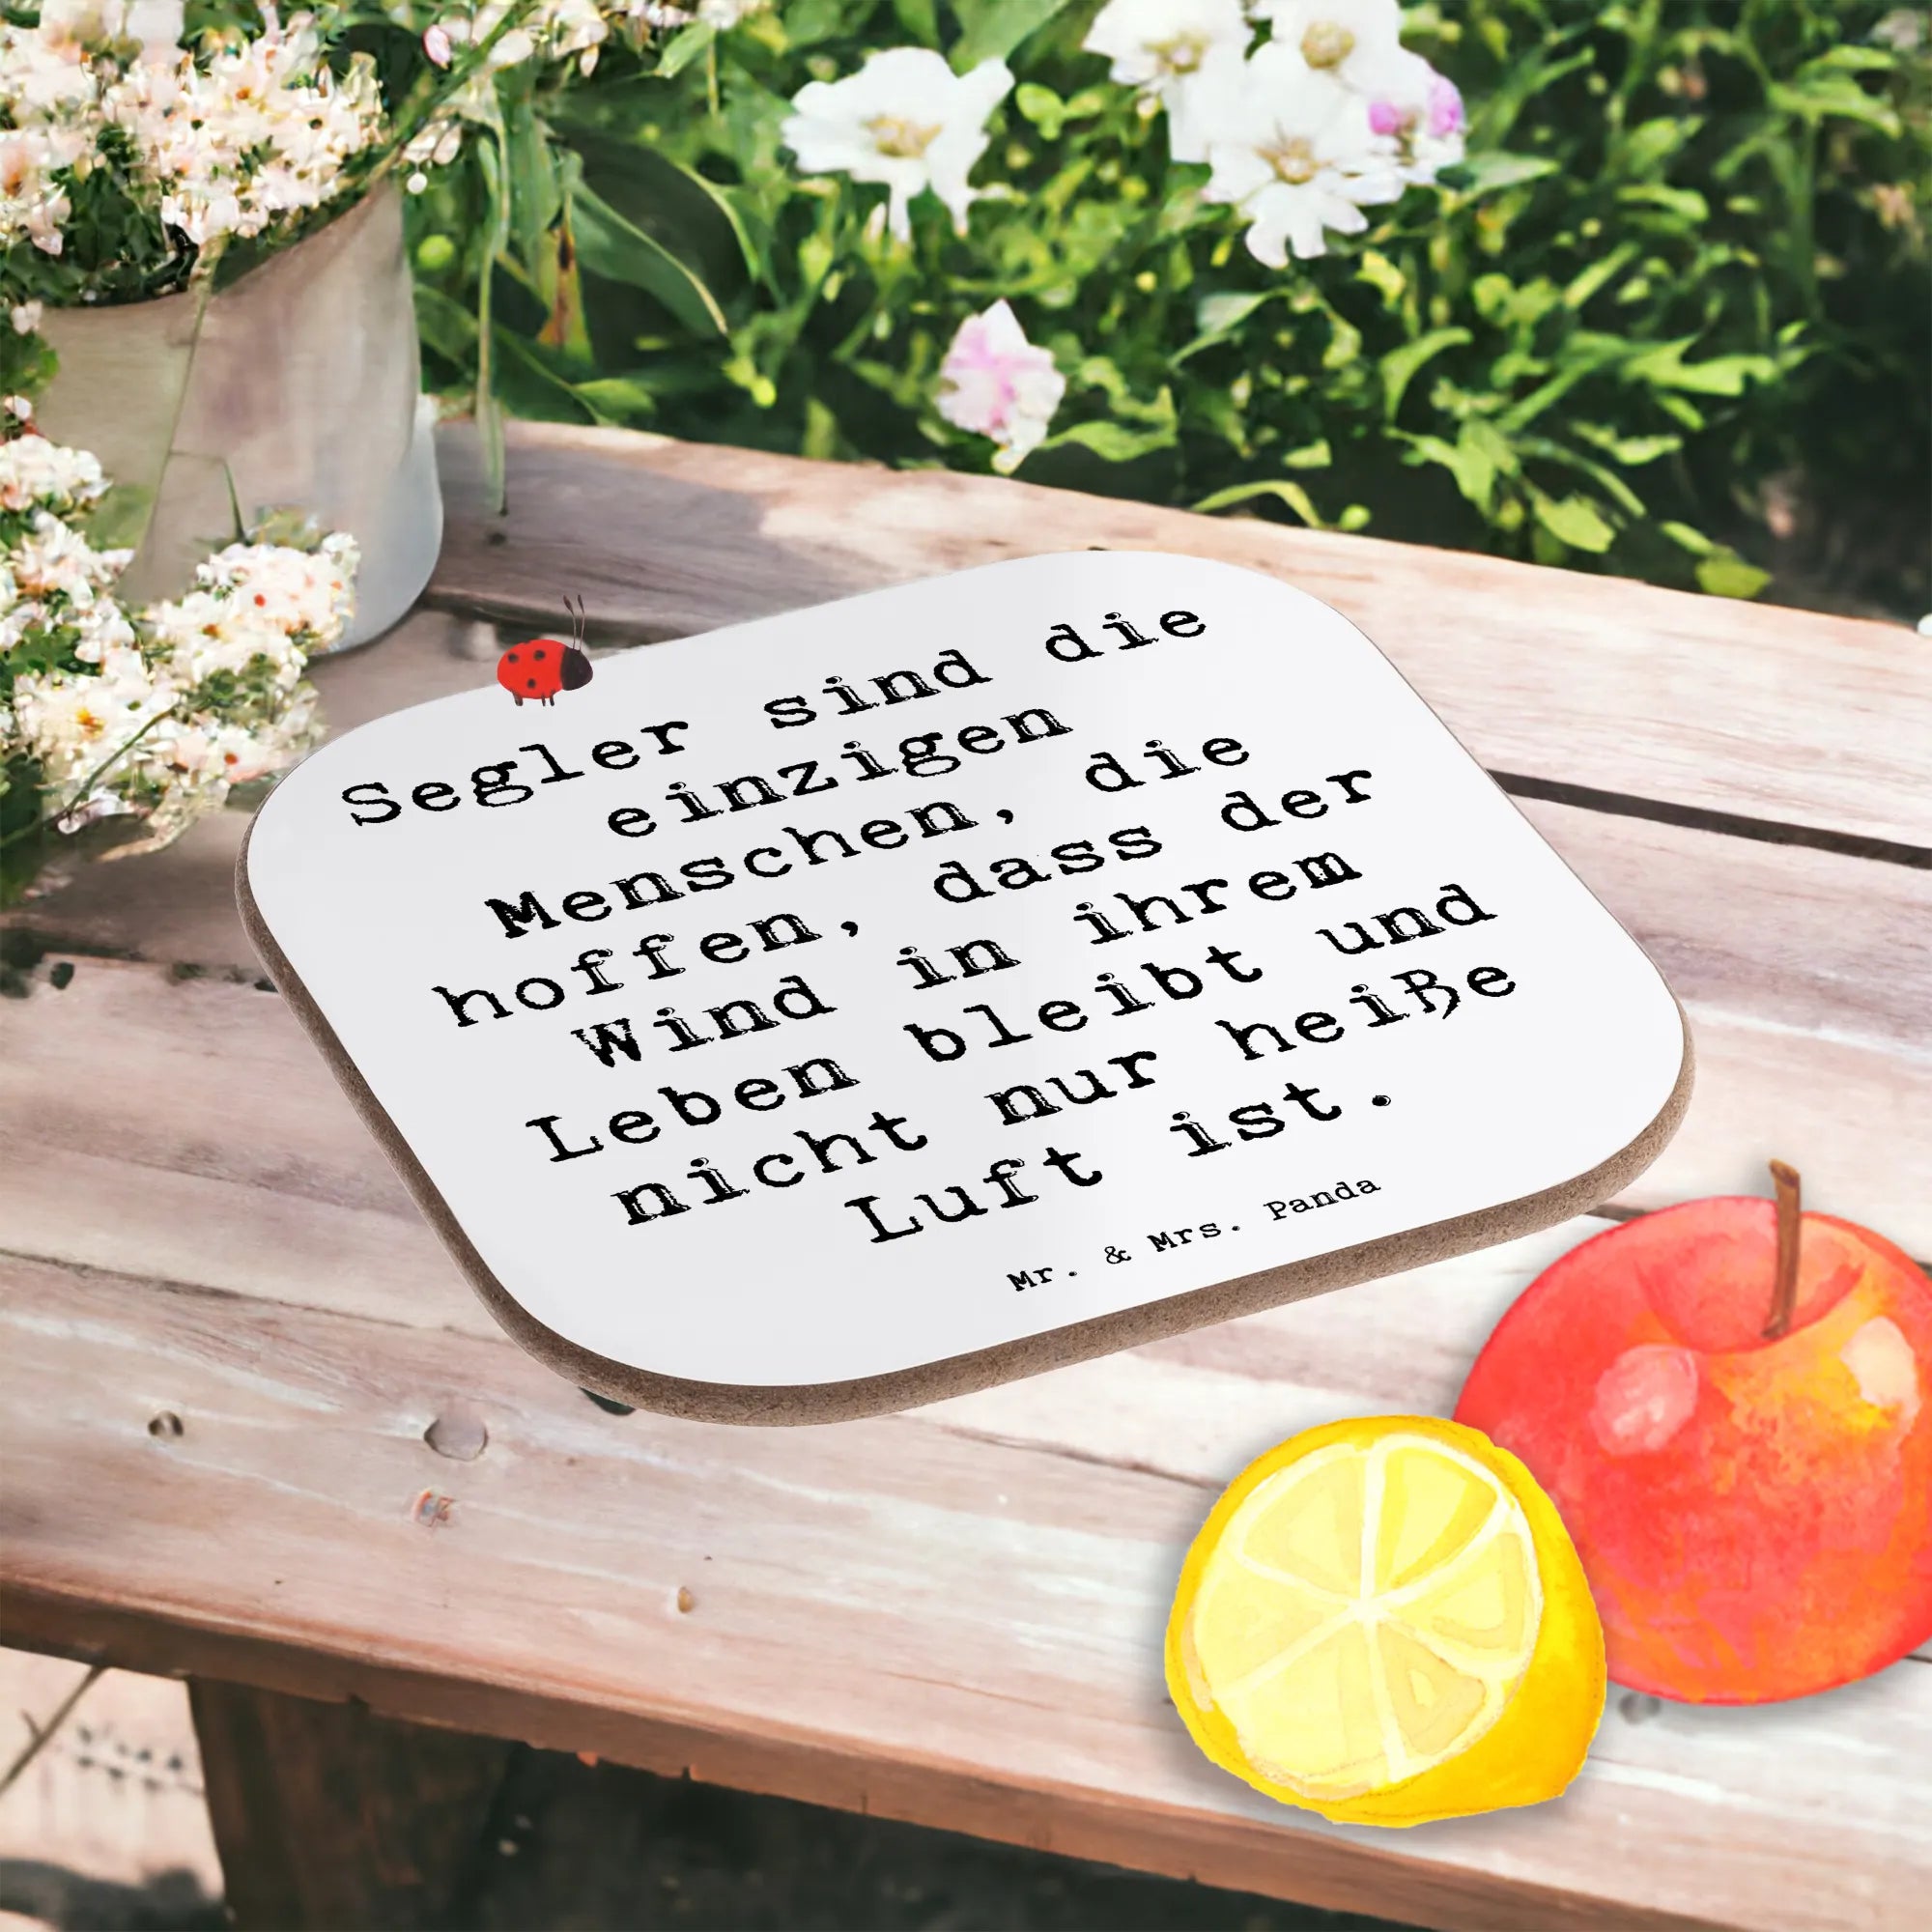 Segler sind die
einzigen
Menschen, die
hoffen, dass der
Wind in ihrem
Leben bleibt und
nicht nur heiße
Luft ist.
Mr. & Mrs. Panda